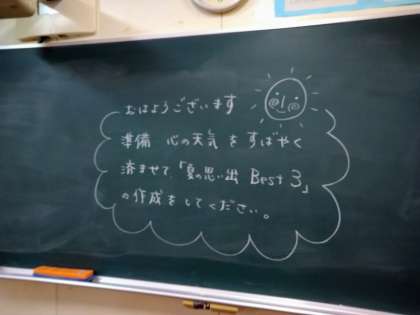 おはようございます
準備 心の天気 を すばやく
済ませて、「夏の思い出 Best 3」
の作成をしてください。